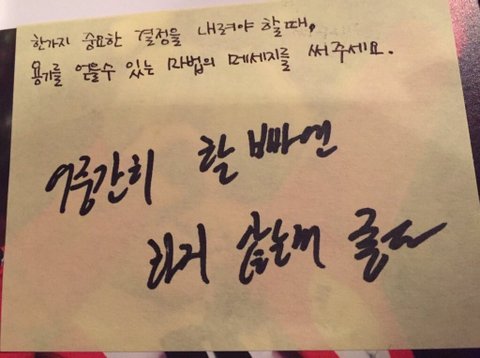 한가지 중요한 결정을 내려야 할때,
용기를 얻을수 있는 마법의 메세지를 써주세요.
어중간히 할 빠엔
하지 않는게 좋다